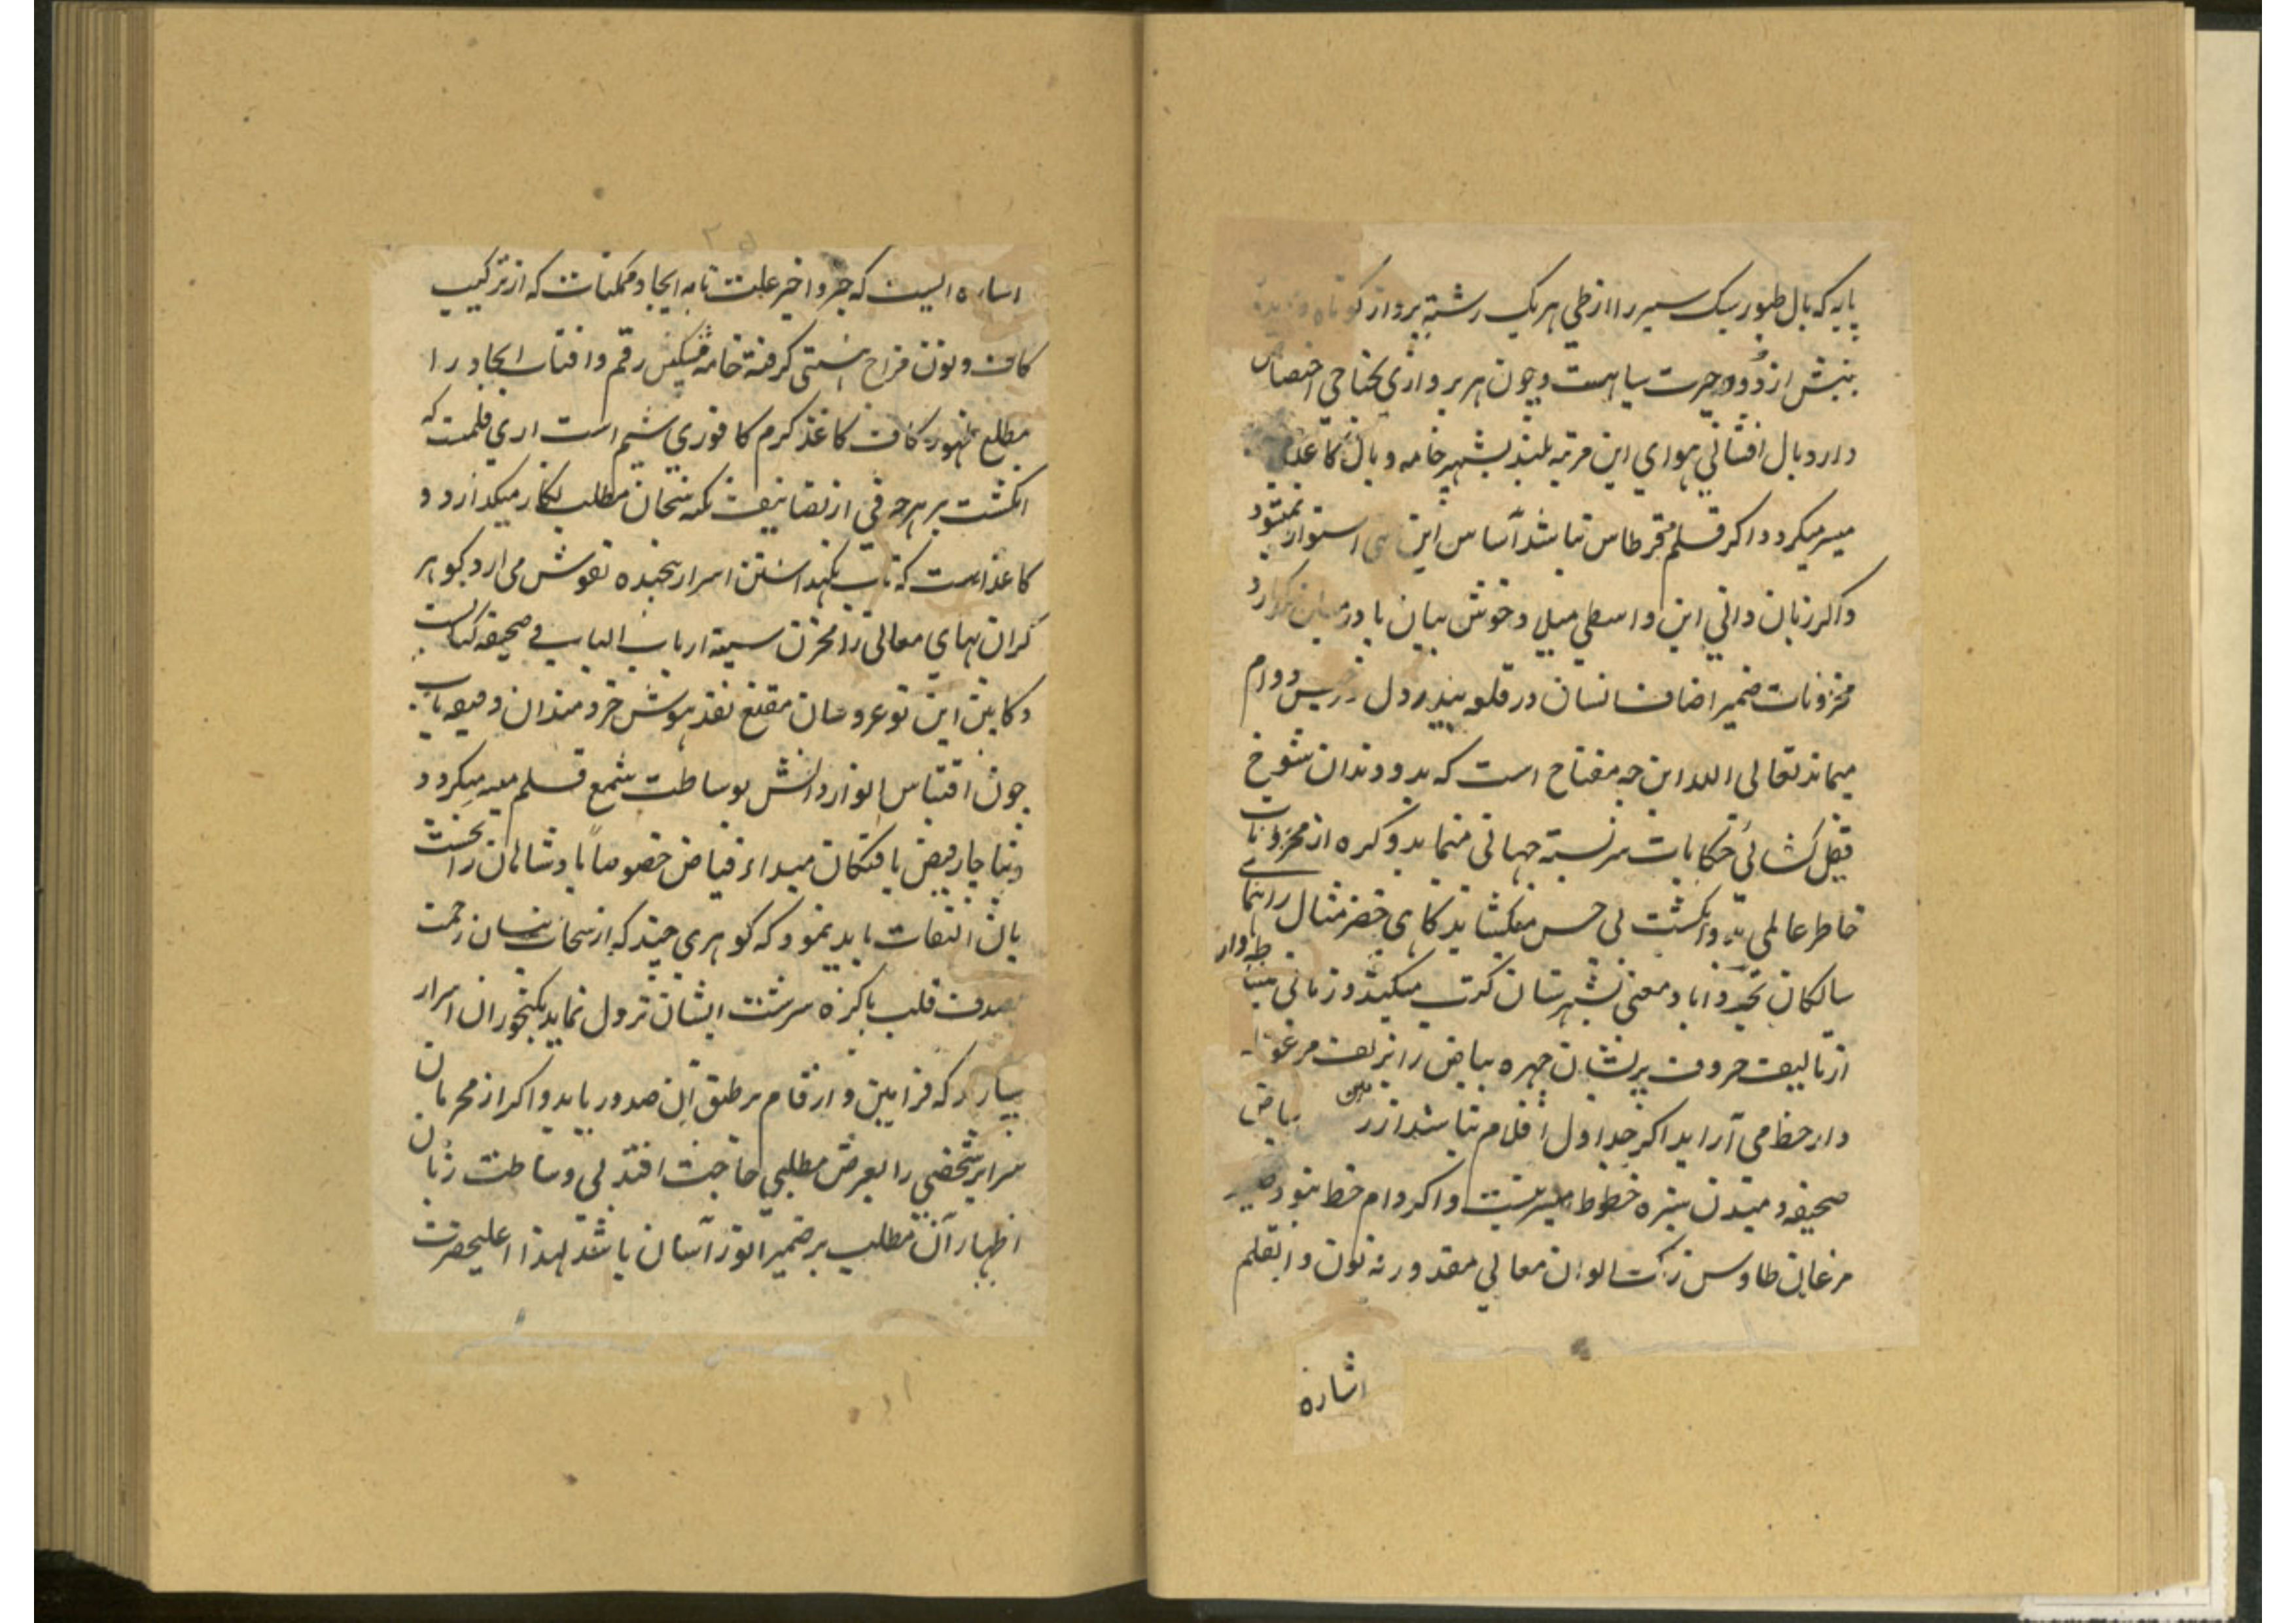 پایه که بال طیور سبک سیر را از طی هر یک رشته پرواز کوتاه و دیده
بینش از دود حیرت سیاهست و چون هر پروازی بجناحی اختصاص
دارد بال افشانی هوای این مرتبه بلند بشهپر خامه و بال کاغذ
میسر میکردد اکر قلم و قرطاس نباشد اساس این استوار نمیشود
و اکر زبان دانی این واسطی میلی و خوش بیان پا در میان نکذارد
مخزونات ضمیر اصناف انسان در قلعه بیدر دل دوام
میماند تعالی الله این چه مفتاح است که بدو دندان شوخ
قفل کشائی حکایات سربسته جهانی مینماید و کره از مخزونات
خاطر عالمی بدو انکشت بی حس میکشاید کاهی خضر مثال راهنمای
سالکان تجرد آباد معنی بشهرستان کثرت میکردد و زمانی مشاطه وار
از تالیف حروف پریشان چهره بیاض را بزلف مرغوله
دار خط می آراید اکر جداول اقلام نباشد از زمین بیاض
صحیفه دمیدن سبزه خطوط میسر نیست و اکر دام خط نبود صید
مرغان طاوس رنک الوان معانی مقدور نه نون و القلم
اشاره
اشاره ایست که جزو اخیر علت تامه ایجاد ممکنات که از ترکیب
کاف و نون مزاج هستی کرفته خامه مشکین رقم و آفتاب ایجاد را
مطلع ظهور کاف کاغذ کرم کافوری شیم است آری قلمست که
انکشت بر هر حرفی از تصانیف نکته سنجان مطلب نکار میکذارد و
کاغذ است که تاب نکهداشتن اسرار سنجیده نقوش می آرد کوهر
کران بهای معانی را مخزن سینه ارباب الباب فی صحیفه کتابست
و کابین این نوعروسان مقنع نقد هوش خردمندان دقیقه یاب
چون اقتباس انوار دانش بوساطت شمع قلم میسر میکردد
و بناچار فیض یافتکان مبداء فیاض خصوصاً پادشاهان را نخست
بان التفات باید نمود که کوهری چند که از سحاب نیسان رحمت
بصدف قلب پاکیزه سرشت ایشان نزول نماید بکنجوران اسرار
بسپارد که فرامین و ارقام بر طبق آن صدور یابد و اکر از محرمان
سرایر شخصی را بعرض مطلبی حاجت افتد بی وساطت زبان
اظهار آن مطلب بر ضمیر انور آسان باشد لهذا اعلیحضرت